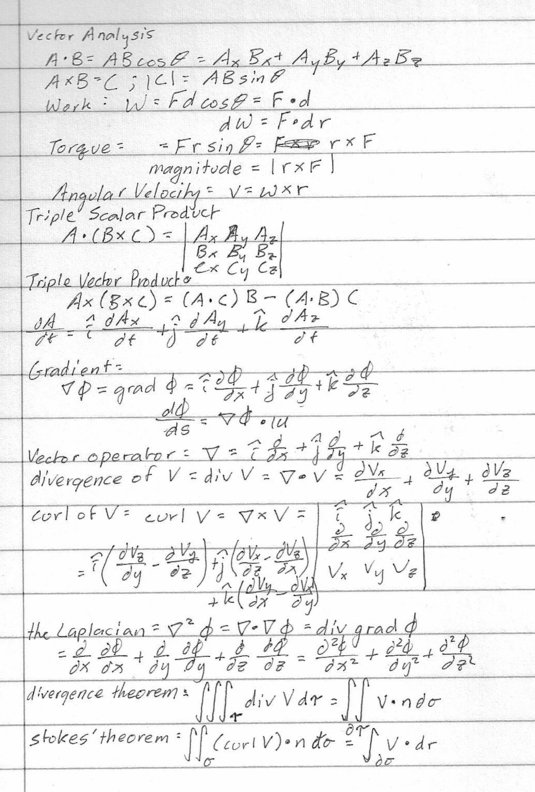 Vector Analysis
A·B = AB cos θ = AₓBₓ + A_yB_y + A_zB_z
A×B = C ; |C| = AB sin θ
Work : W = Fd cos θ = F·d
dW = F·dr
Torque = = Fr sin θ = r×F
magnitude = |r×F|
Angular Velocity = v = ω×r
Triple Scalar Product
A·(B×C) = | Aₓ A_y A_z |
Bₓ B_y B_z
Cₓ C_y C_z
Triple Vector Product =
A×(B×C) = (A·C)B − (A·B)C
dA/dt = î dAₓ/dt + ĵ dA_y/dt + k̂ dA_z/dt
Gradient =
∇Φ = grad ϕ = î ∂Φ/∂x + ĵ ∂Φ/∂y + k̂ ∂Φ/∂z
dϕ/ds = ∇ϕ · u
Vector operator = ∇ = î ∂/∂x + ĵ ∂/∂y + k̂ ∂/∂z
divergence of V = div V = ∇·V = ∂Vₓ/∂x + ∂V_y/∂y + ∂V_z/∂z
curl of V = curl V = ∇×V = | î ĵ k̂ |
∂/∂x ∂/∂y ∂/∂z
Vₓ V_y V_z
= î(∂V_z/∂y − ∂V_y/∂z) + ĵ(∂Vₓ/∂z − ∂V_z/∂x)
+ k̂(∂V_y/∂x − ∂Vₓ/∂y)
the Laplacian = ∇²ϕ = ∇·∇ϕ = div grad ϕ
= ∂/∂x ∂ϕ/∂x + ∂/∂y ∂ϕ/∂y + ∂/∂z ∂ϕ/∂z = ∂²ϕ/∂x² + ∂²ϕ/∂y² + ∂²ϕ/∂z²
divergence theorem = ∭_τ div V dτ = ∬_∂τ V·n dσ
stokes' theorem = ∬_σ (curl V)·n dσ = ∫_∂σ V·dr